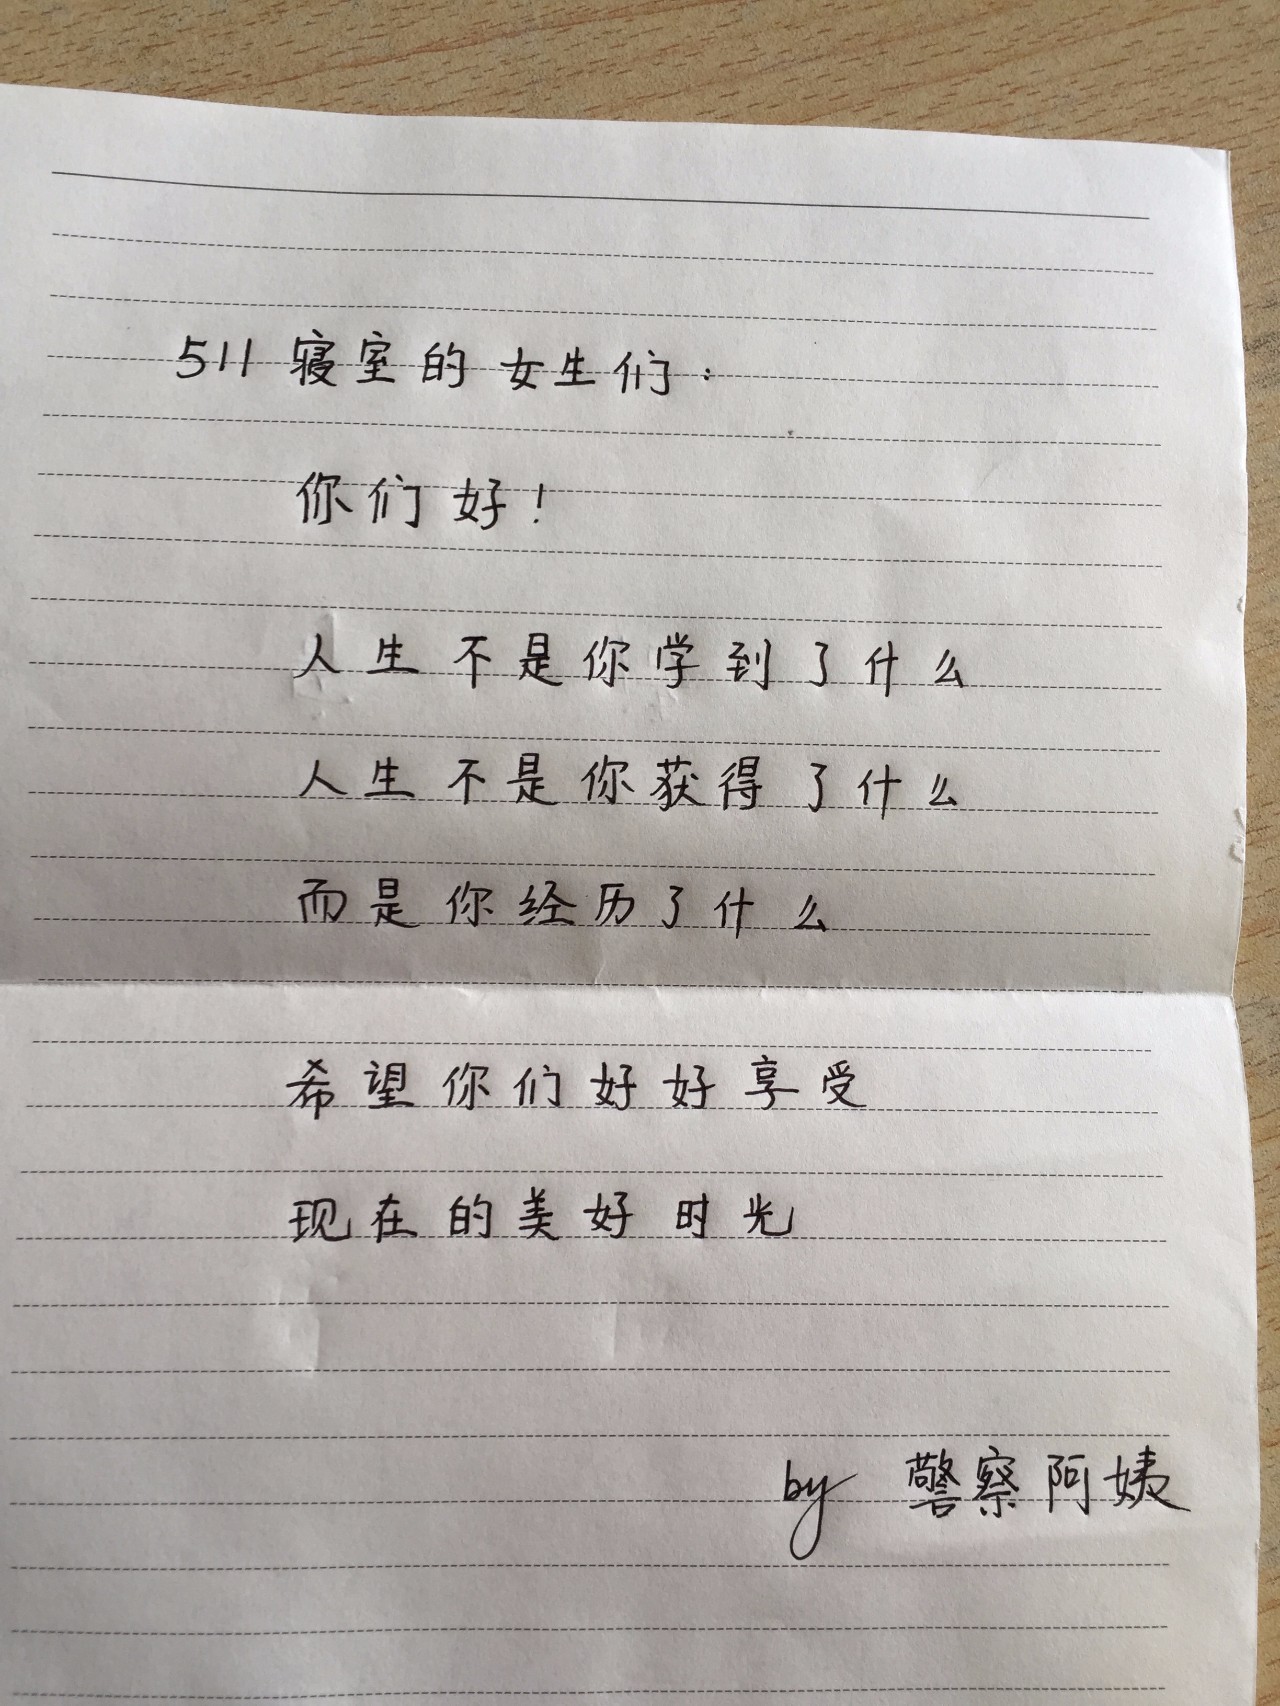 511寝室的女生们：
你们好！
人生不是你学到了什么
人生不是你获得了什么
而是你经历了什么
希望你们好好享受
现在的美好时光
by 警察阿姨